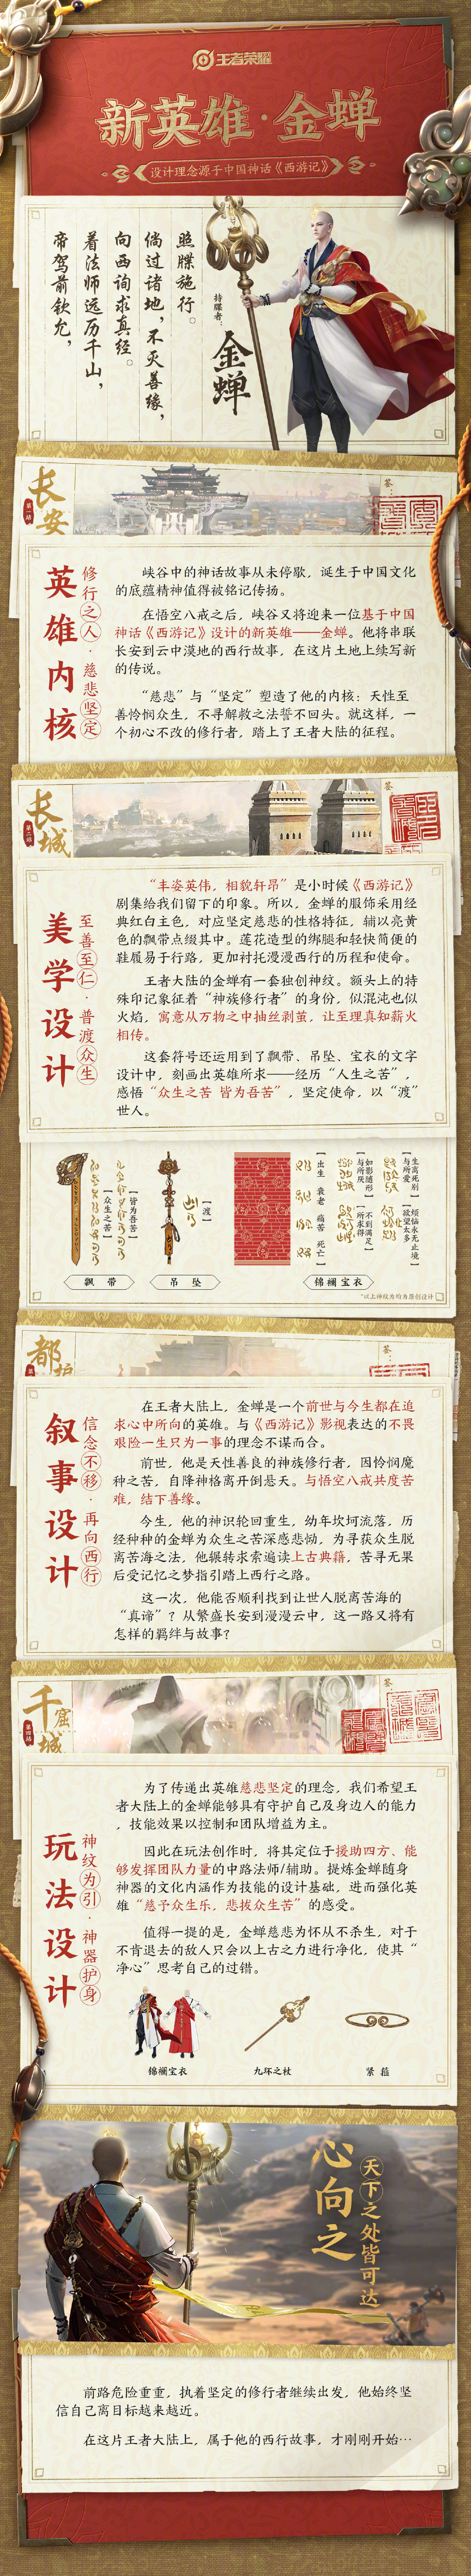 王者荣耀
新英雄·金蝉
设计理念源于中国神话《西游记》
帝驾前钦允，
着法师远历千山，
向西询求真经。
倘过诸地，不灭善缘，
照牒施行。
持牒者：
金蝉
长安
第一站
签：
英雄内核
修行之人·慈悲坚定
峡谷中的神话故事从未停歇，诞生于中国文化
的底蕴精神值得被铭记传扬。
在悟空八戒之后，峡谷又将迎来一位基于中国
神话《西游记》设计的新英雄——金蝉。他将串联
长安到云中漠地的西行故事，在这片土地上续写新
的传说。
“慈悲”与“坚定”塑造了他的内核：天性至
善怜悯众生，不寻解救之法誓不回头。就这样，一
个初心不改的修行者，踏上了王者大陆的征程。
长城
第二站
签：
美学设计
至善至仁·普渡众生
“丰姿英伟，相貌轩昂”是小时候《西游记》
剧集给我们留下的印象。所以，金蝉的服饰采用经
典红白主色，对应坚定慈悲的性格特征，辅以亮黄
色的飘带点缀其中。莲花造型的绑腿和轻快简便的
鞋履易于行路，更加衬托漫漫西行的历程和使命。
王者大陆的金蝉有一套独创神纹。额头上的特
殊印记象征着“神族修行者”的身份，似混沌也似
火焰，寓意从万物之中抽丝剥茧，让至理真知薪火
相传。
这套符号还运用到了飘带、吊坠、宝衣的文字
设计中，刻画出英雄所求——经历“人生之苦”，
感悟“众生之苦 皆为吾苦”，坚定使命，以“渡”
世人。
【众生之苦】
【皆为吾苦】
飘带
【渡】
吊坠
【出生 衰老 痛苦 死亡】
【如影随形 与所厌】
【不到满足 所求得】
【生离死别 与所爱】
【烦恼永无止境 欲望太多】
锦襕宝衣
*以上神纹为均为原创设计
都护
签：
叙事设计
信念不移·再向西行
在王者大陆上，金蝉是一个前世与今生都在追
求心中所向的英雄。与《西游记》影视表达的不畏
艰险一生只为一事的理念不谋而合。
前世，他是天性善良的神族修行者，因怜悯魔
种之苦，自降神格离开倒悬天。与悟空八戒共度苦
难，结下善缘。
今生，他的神识轮回重生，幼年坎坷流落，历
经种种的金蝉为众生之苦深感悲恸，为寻获众生脱
离苦海之法，他辗转求索遍读上古典籍，苦寻无果
后受记忆之梦指引踏上西行之路。
这一次，他能否顺利找到让世人脱离苦海的
“真谛”？从繁盛长安到漫漫云中，这一路又将有
怎样的羁绊与故事？
千窟城
第四站
签：
玩法设计
神纹为引·神器护身
为了传递出英雄慈悲坚定的理念，我们希望王
者大陆上的金蝉能够具有守护自己及身边人的能力
，技能效果以控制和团队增益为主。
因此在玩法创作时，将其定位于援助四方、能
够发挥团队力量的中路法师/辅助。提炼金蝉随身
神器的文化内涵作为技能的设计基础，进而强化英
雄“慈予众生乐，悲拔众生苦”的感受。
值得一提的是，金蝉慈悲为怀从不杀生，对于
不肯退去的敌人只会以上古之力进行净化，使其“
净心”思考自己的过错。
锦襕宝衣
九环之杖
紧箍
心向之
天下之处皆可达
前路危险重重，执着坚定的修行者继续出发，他始终坚
信自己离目标越来越近。
在这片王者大陆上，属于他的西行故事，才刚刚开始…